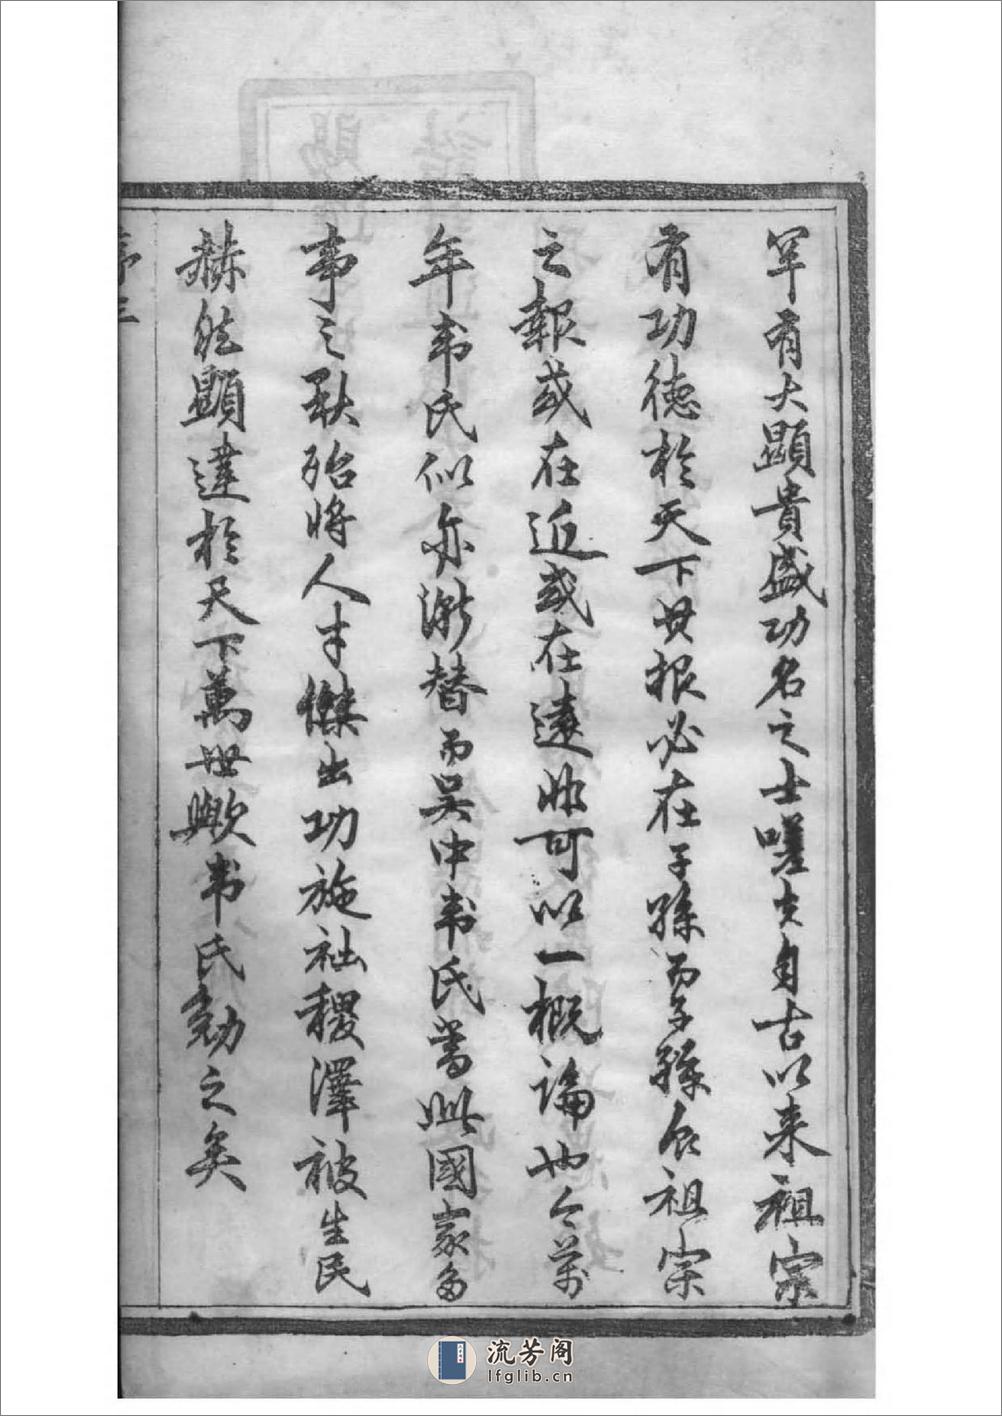 罕有大顯貴盛功名之士嗟夫自古以来祖宗
有功德於天下其根必在子孫而子孫食祖宗
之報或在近或在遠非可以一概論也今蒞
年韦氏似亦漸替而吴中韦氏當此國家多
事之秋殆將人才傑出功施社稷澤被生民
赫然顯達於天下萬世歟韦氏勉之矣
序三
流芳阁
lfglib.cn